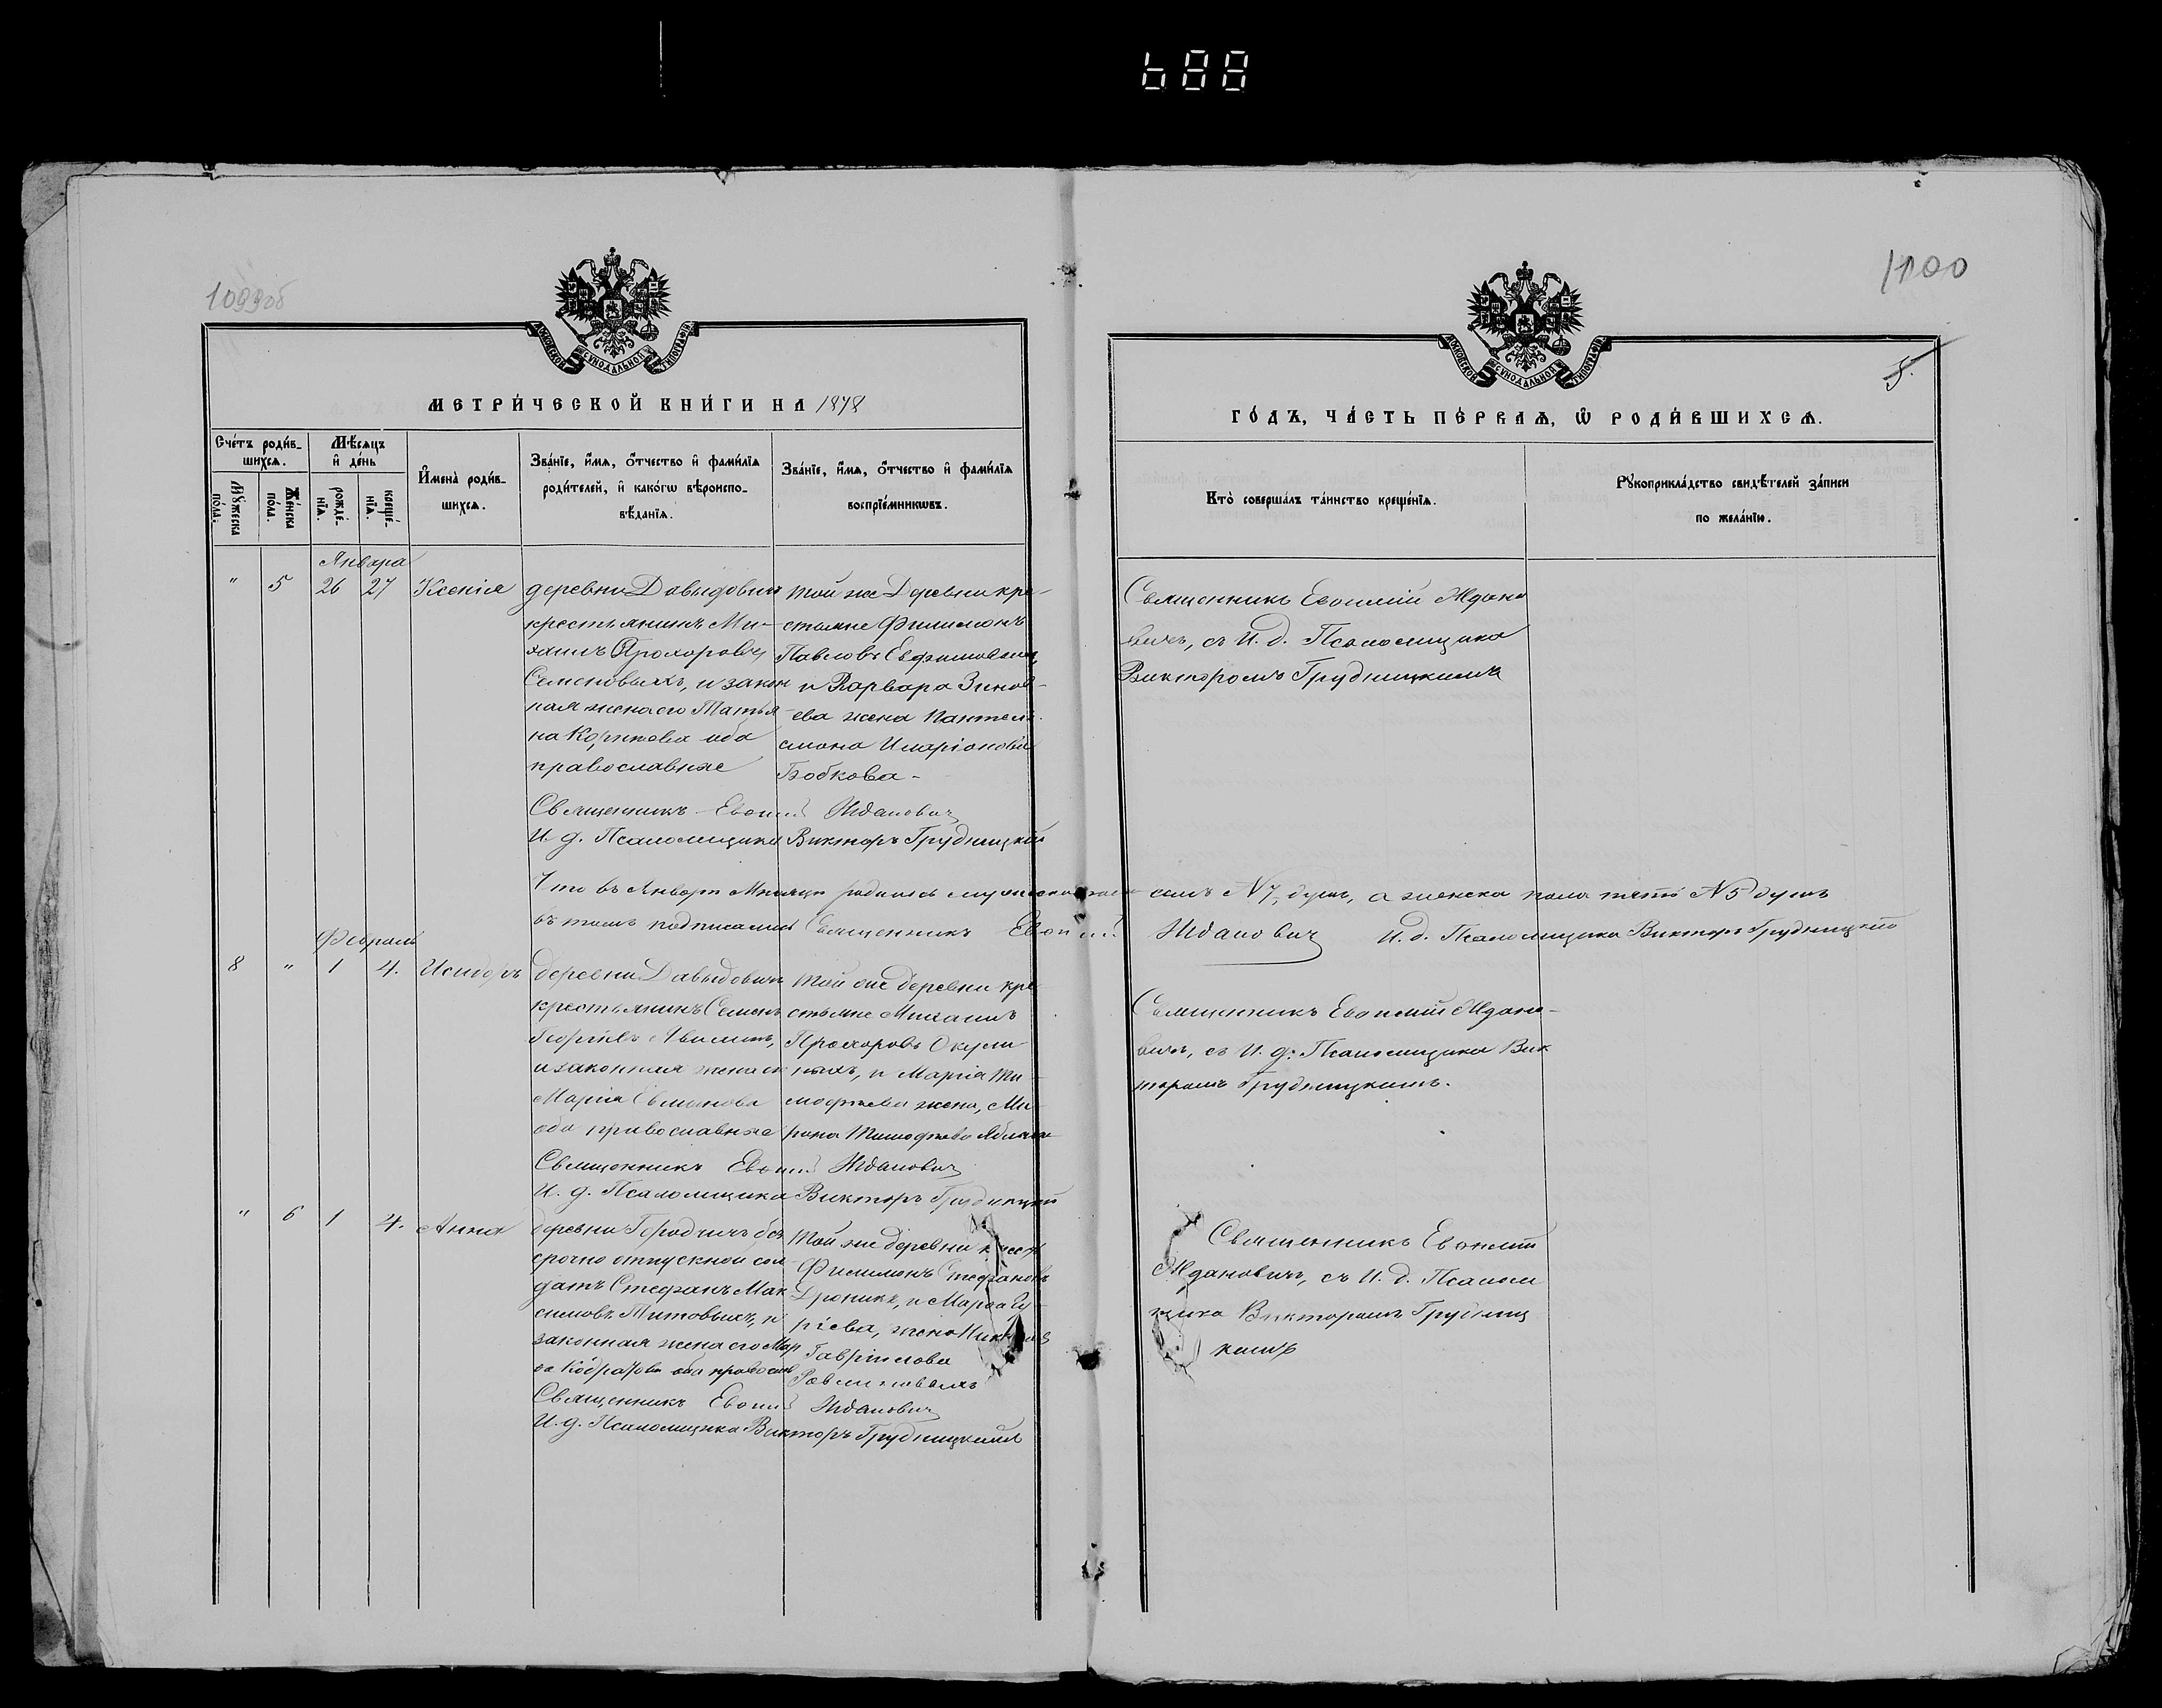 1099об
1100
5.
МОСКОВСКОЙ СѴНОДАЛЬНОЙ ТИПОГРАФІИ
МОСКОВСКОЙ СѴНОДАЛЬНОЙ ТИПОГРАФІИ
МЕТРИ́ЧЕСКОЙ КНИ́ГИ НА 1878
ГО́ДЪ, ЧА́СТЬ ПЕ́РВАѦ, Ѡ РОДИ́ВШИХСѦ.
Сче́тъ роди́в-
шихсѧ.
Мѣ́сѧцъ
и҆ де́нь
Мꙋ́жеска
по́ла.
Же́нска
по́ла.
рожде́-
нїѧ.
креще́-
нїѧ.
И҆мена̀ роди́в-
шихсѧ.
Зва́нїе, и҆́мѧ, ѻ҆́тчество и҆ фами́лїѧ
роди́телей, и҆ како́гѡ вѣроиспо-
вѣ́данїѧ.
Зва́нїе, и҆́мѧ, ѻ҆́тчество и҆ фами́лїѧ
воспрїе́мникѡвъ.
Кто̀ соверша́лъ та́инство креще́нїѧ.
Рꙋкоприкла́дство свидѣ́телей за́писи
по жела́нїю.
Января
" 5 26 27 Ксенія
деревни Давыдовичъ
крестьянинъ Ми-
хаилъ Прохоровъ
Семеновыхъ, и закон
ная жена его Татья
на оба
православные
Той же Деревни кре-
стьяне Филимонъ
Павловъ
и Варвара Зинов-
ева жена Пантеле
Иларіонова
Бобкова-
Священникъ Евѳимій Ждано
вичъ, съ И. д. Псаломщика
Викторомъ Грудницкимъ
Священникъ Евѳимій Ждановичъ
И. д. Псаломщика Викторъ Грудницкій
Что въ Январѣ Мѣсяцѣ родилось семь N7 душъ, а женска пола пять N5 душъ
въ томъ подписались Священникъ Евѳимій Ждановичъ И. д. Псаломщика Викторъ Грудницкій
Февраль
8 " 1 4. Исидоръ
деревни Давыдовичъ
крестьянинъ Семенъ
Георгіевъ
и законная жена его
Марія
оба православные
Той же деревни кре
стьяне Михаилъ
Прохоровъ
и Марія Ти-
мофѣева жена, Ми
рона Тимофѣева
Священникъ Евѳимій Ждано-
вичъ, съ И. д. Псаломщика Вик
торомъ Грудницкимъ.
Священникъ Евѳимій Ждановичъ
И. д. Псаломщика Викторъ Грудницкій
" 6 1 4. Анна
деревни Городчичъ без
срочно отпускной сол
датъ Стефанъ Мак
симовъ Титовыхъ, и
законная жена его Мар
оба правосл
Той же деревни
Филимонъ Стефановъ
и Марѳа
жена
Гаврилова
Священникъ Евѳимій
Ждановичъ, съ И. д. Псалом
щика Викторомъ Грудниц
кимъ
Священникъ Евѳимій Ждановичъ
И. д. Псаломщика Викторъ Грудницкій